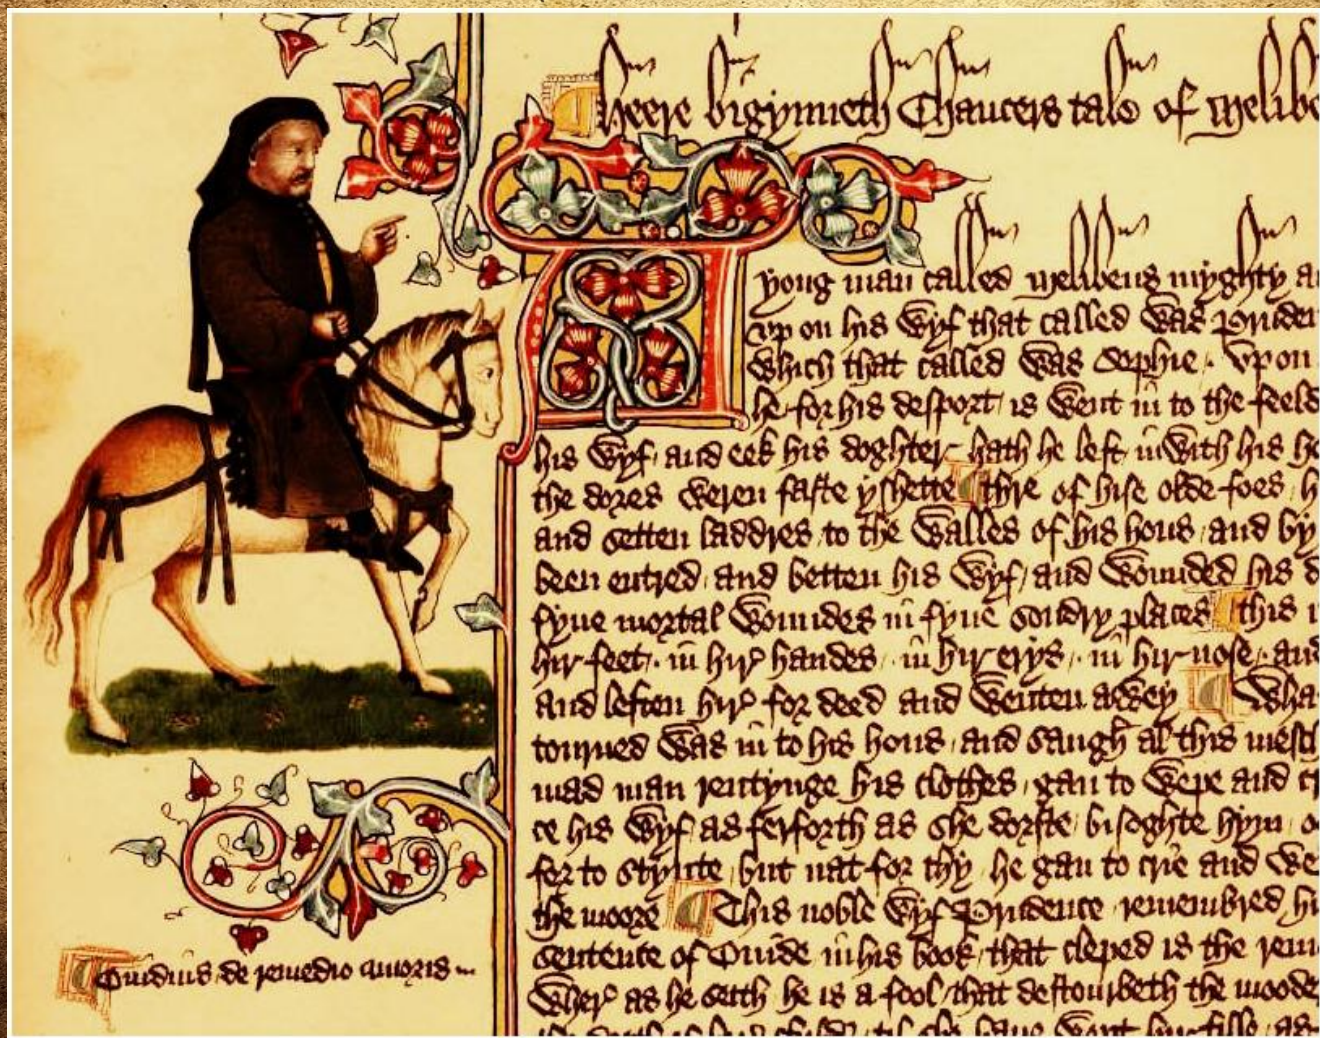 Heere bigynneth Chaucers tale of Melibe
yong man called Melibeus myghty a
vp on his wyf that called was Pruden
which that called was Sophie . vp on
he for his desport is went in to the feeld
his wyf and eek his doghter hath he left inwith his h
the dores weren faste yshette thre of hise olde foes h
and setten laddres to the walles of his hous and by
been entred and betten his wyf and wounded his d
fyue mortal woundes in fyue sondry places this
hir feet . in hir handes . in hir erys . in hir nose and
and leften hir for deed and wenten awey Wha
tourned was in to his hous and saugh al this mescl
mad man rentynge his clothes gan to wepe and cr
ce his wyf as ferforth as she dorste bisoghte hym o
for to stynte but nat for thy he gan to crie and we
the moore This noble wyf Prudence remembred hi
sentence of Ouide in his book that cleped is the rem
wher as he seith he is a fool that destourbeth the moode
Ouidius de remedio amoris